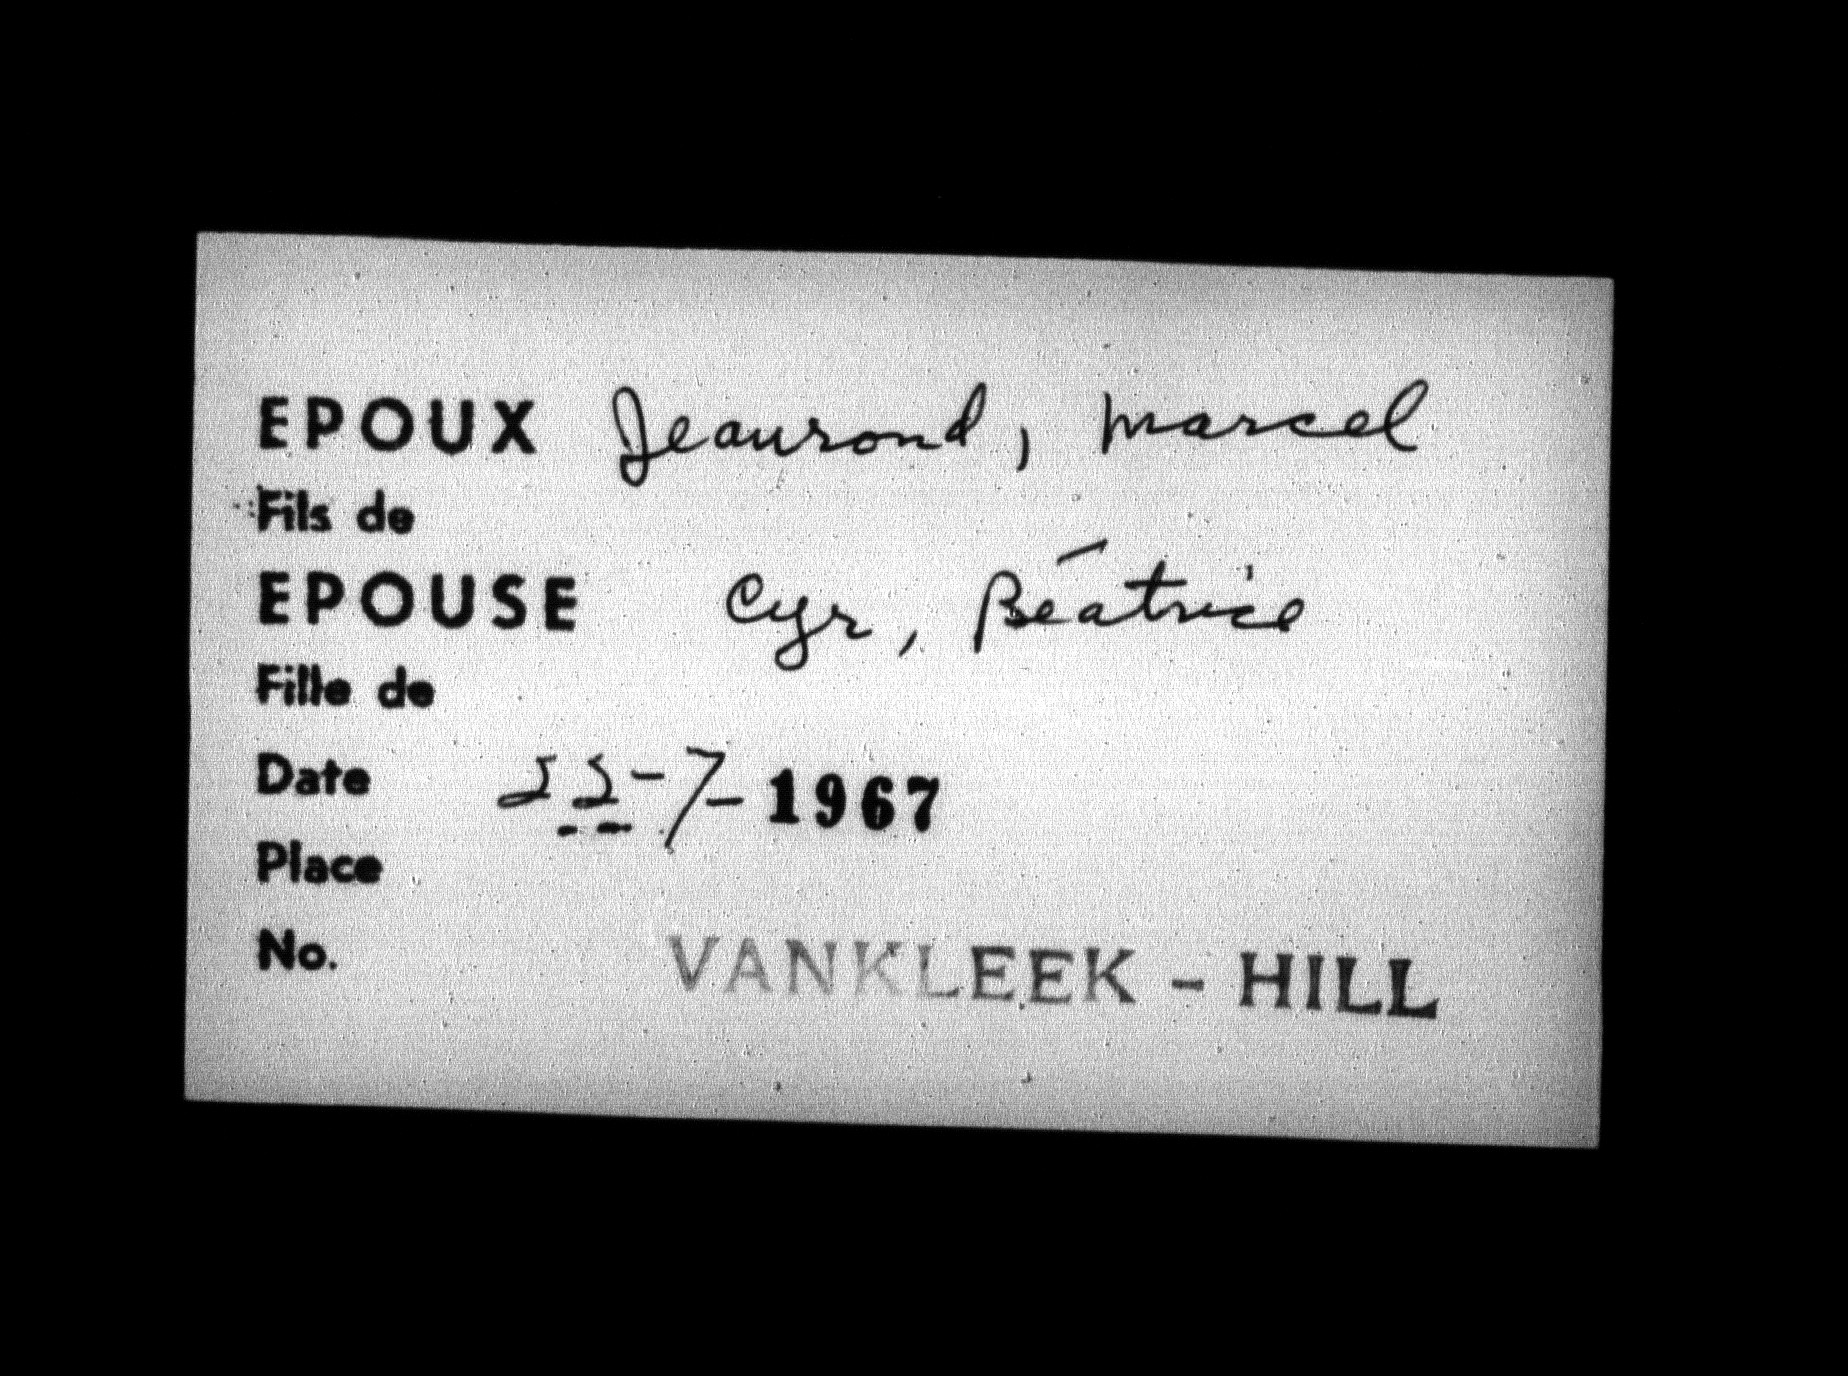 EPOUX Jeaurond, Marcel
Fils de
EPOUSE Cyr, Béatrice
Fille de
Date 22-7-1967
Place
No. VANKLEEK - HILL